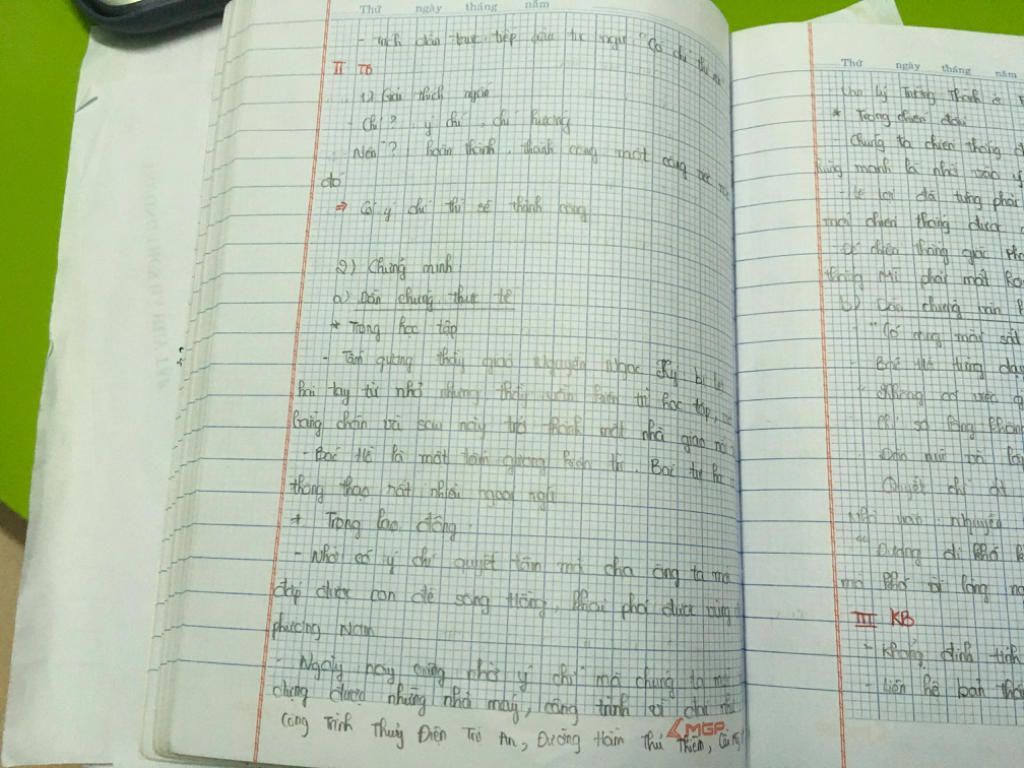 Thứ ngày tháng năm
- Trích dẫn trực tiếp câu tục ngữ "Có chí thì nên
II TB
1) Giải thích nghĩa
- Chí? ý chí, chí hướng
Nên? hoàn thành, thành công một công việc
đó
⇒ Có ý chí thì sẽ thành công
2) Chứng minh
a) Dẫn chứng thực tế
* Trong học tập
- Tấm gương thầy giáo Nguyễn Ngọc Ký bị liệt
hai tay từ nhỏ nhưng thầy vẫn kiên trì học tập,
bằng chân và sau này trở thành một nhà giáo
- Bác Hồ là một tấm gương kiên trì. Bác tự học
thông thạo rất nhiều ngoại ngữ
* Trong lao động
- Nhờ có ý chí quyết tâm mà cha ông ta mới
đắp được con đê sông Hồng, khai phá được vùng
phương Nam
- Ngày nay cũng nhờ ý chí mà chúng ta mới
dựng được những nhà máy, công trình vĩ đại như
Công Trình Thuỷ Điện Trị An, Đường Hầm Thủ Thiêm,
MGP
Thứ ngày tháng năm
* Trong chiến đấu
- Chúng ta chiến thắng
hùng mạnh là nhờ vào ý
- Lê Lợi đã từng phải
mới chiến thắng được
- Để chiến thắng giặc
thắng Mĩ phải mất
b) Dẫn chứng văn
- "Có công mài sắt
- Bác Hồ từng dạy
"Không có việc
Chỉ sợ lòng không
Đào núi và lấp
Quyết chí ắt
Nhà văn Nguyễn
"Đường đi khó
mà khó vì lòng
III KB
- Khẳng định tính
- Liên hệ bản thân